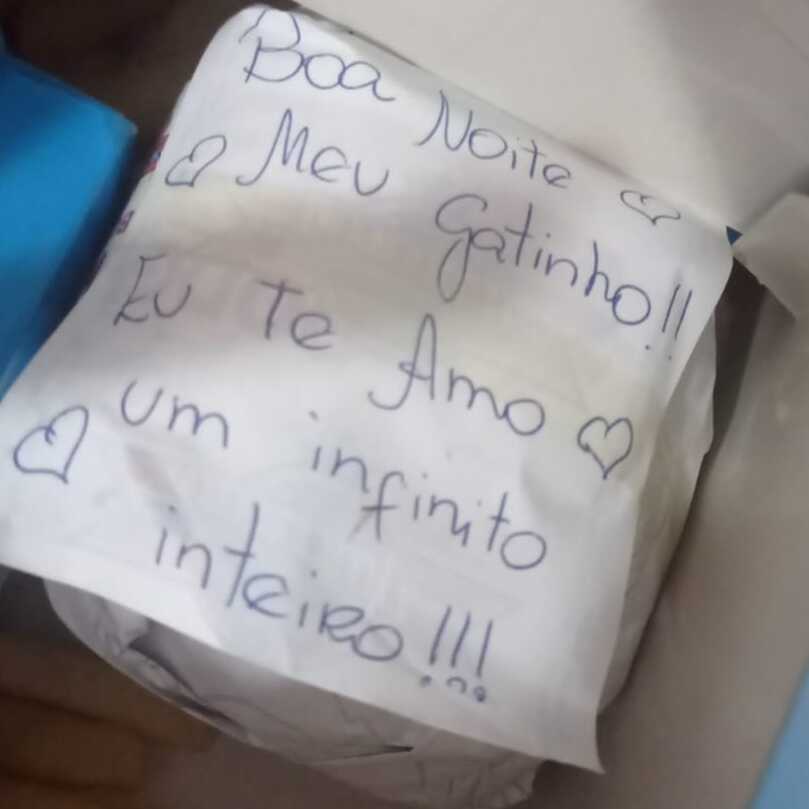 Boa Noite
Meu gatinho!!
Eu Te Amo
um infinito
inteiro!!!